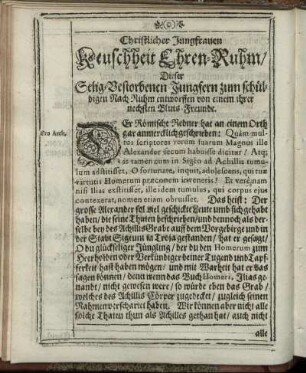 Christlicher Jungfrauen
Keuschheit Ehren-Ruhm/
Dieser
Selig-Verstorbenen Jungfern zum schül-
digen Nach-Ruhm entworffen von einem ihrer
nechsten Bluts-Freunde.
Er Römische Redner hat an einem Orth
gar anmercklich geschrieben: Quàm mul-
tos scriptores rerum suarum Magnus ille
Alexander secum habuisse dicitur; Atq;
is tamen cum in Sigæo ad Achillis tumu-
lum astitisset, O fortunate, inquit, adolescens, qui tuæ
virtutis Homerum præconem inveneris! Et verè, nam
nisi Ilias exstitisset, ille idem tumulus, qui corpus ejus
contexerat, nomen etiam obruisset. Das heist: Der
grosse Alexander sol viel geschickte Leute umb sich gehabt
haben/ die seine Thaten beschrieben/ und dennoch als der-
selbe bey des Achillis Grabe auf dem Vorgebirge und in
der Stadt Sigæum in Troja gestanden/ hat er gesagt/
O du glückseliger Jüngling/ der du den Homerum zum
Herholden oder Verkündiger deiner Tugend und Tapf-
ferkeit hast haben mögen/ und mit Warheit hat er das
sagen können/ denn wenn das Buch Homeri, Ilias ge-
nandt/ nicht gewesen were/ so würde eben das Grab/
welches des Achillis Cörper zugedecket/ zugleich seinen
Nahmen verscharret haben. Wir können aber nicht alle
solche Thaten thun als Achilles gethan hat/ auch nicht
alle